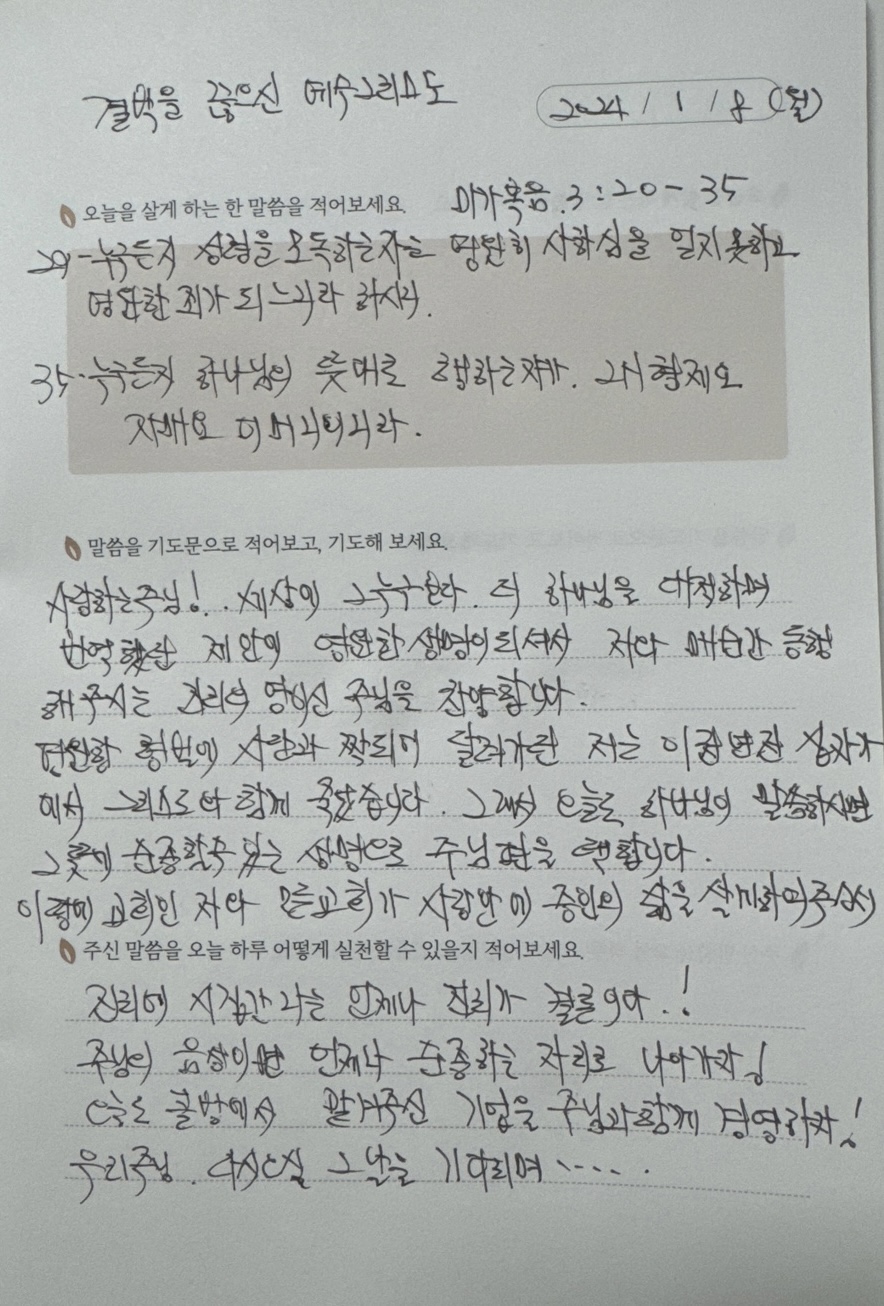 결박을 끊으신 예수그리스도
2024 / 1 / 8 (월)
오늘을 살게 하는 한 말씀을 적어보세요.
마가복음.3:20-35
29-누구든지 성령을 모독하는자는 영원히 사하심을 얻지못하고
영원한 죄가 되느니라 하시라.
35-누구든지 하나님의 뜻대로 행하는자가. 내형제요
자매요 어머니이니라.
말씀을 기도문으로 적어보고, 기도해 보세요.
사랑하는주님!.. 세상의 그누구보다. 더 하나님을 대적하며
반역했던 제안의 영원한생명이되셔서 저와 매순간 동행
해주시는 진리의 영이신 주님을 찬양합니다.
사탄과 짝되어 달려가던 저는 이천년전 십자가
에서 그리스도와 함께 죽었습니다. 그래서 오늘도 하나님이 말씀하시면
그뜻에 순종할수있는 생명으로 주님편을 택합니다.
이땅에 교회인 저와 모든교회가 사랑안에 증인의 삶을 살게하여주십시
주신 말씀을 오늘 하루 어떻게 실천할 수 있을지 적어보세요.
진리에 시집간 나는 언제나 진리가 결론이다.!
주님의 음성이면 언제나 순종하는 자리로 나아가자!
오늘도 맡겨주신 기업을 주님과함께 경영하자!
우리주님. 다시오실 그날을 기다리며.....